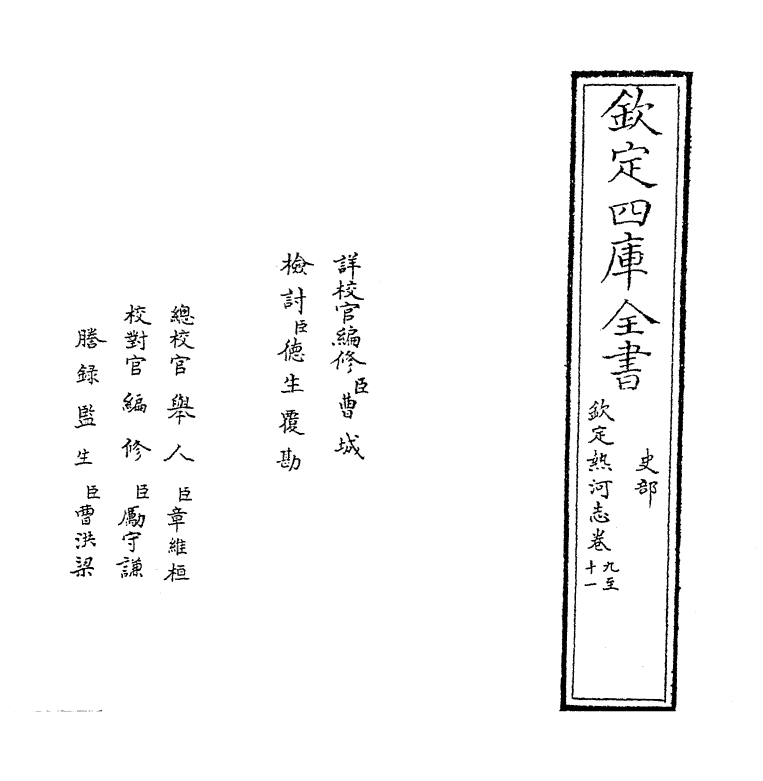 欽定四庫全書
史部
欽定熱河志卷九至十一
詳校官編修臣曹城
檢討臣德生覆勘
總校官舉人臣章維桓
校對官編修臣勵守謙
謄錄監生臣曹洪梁